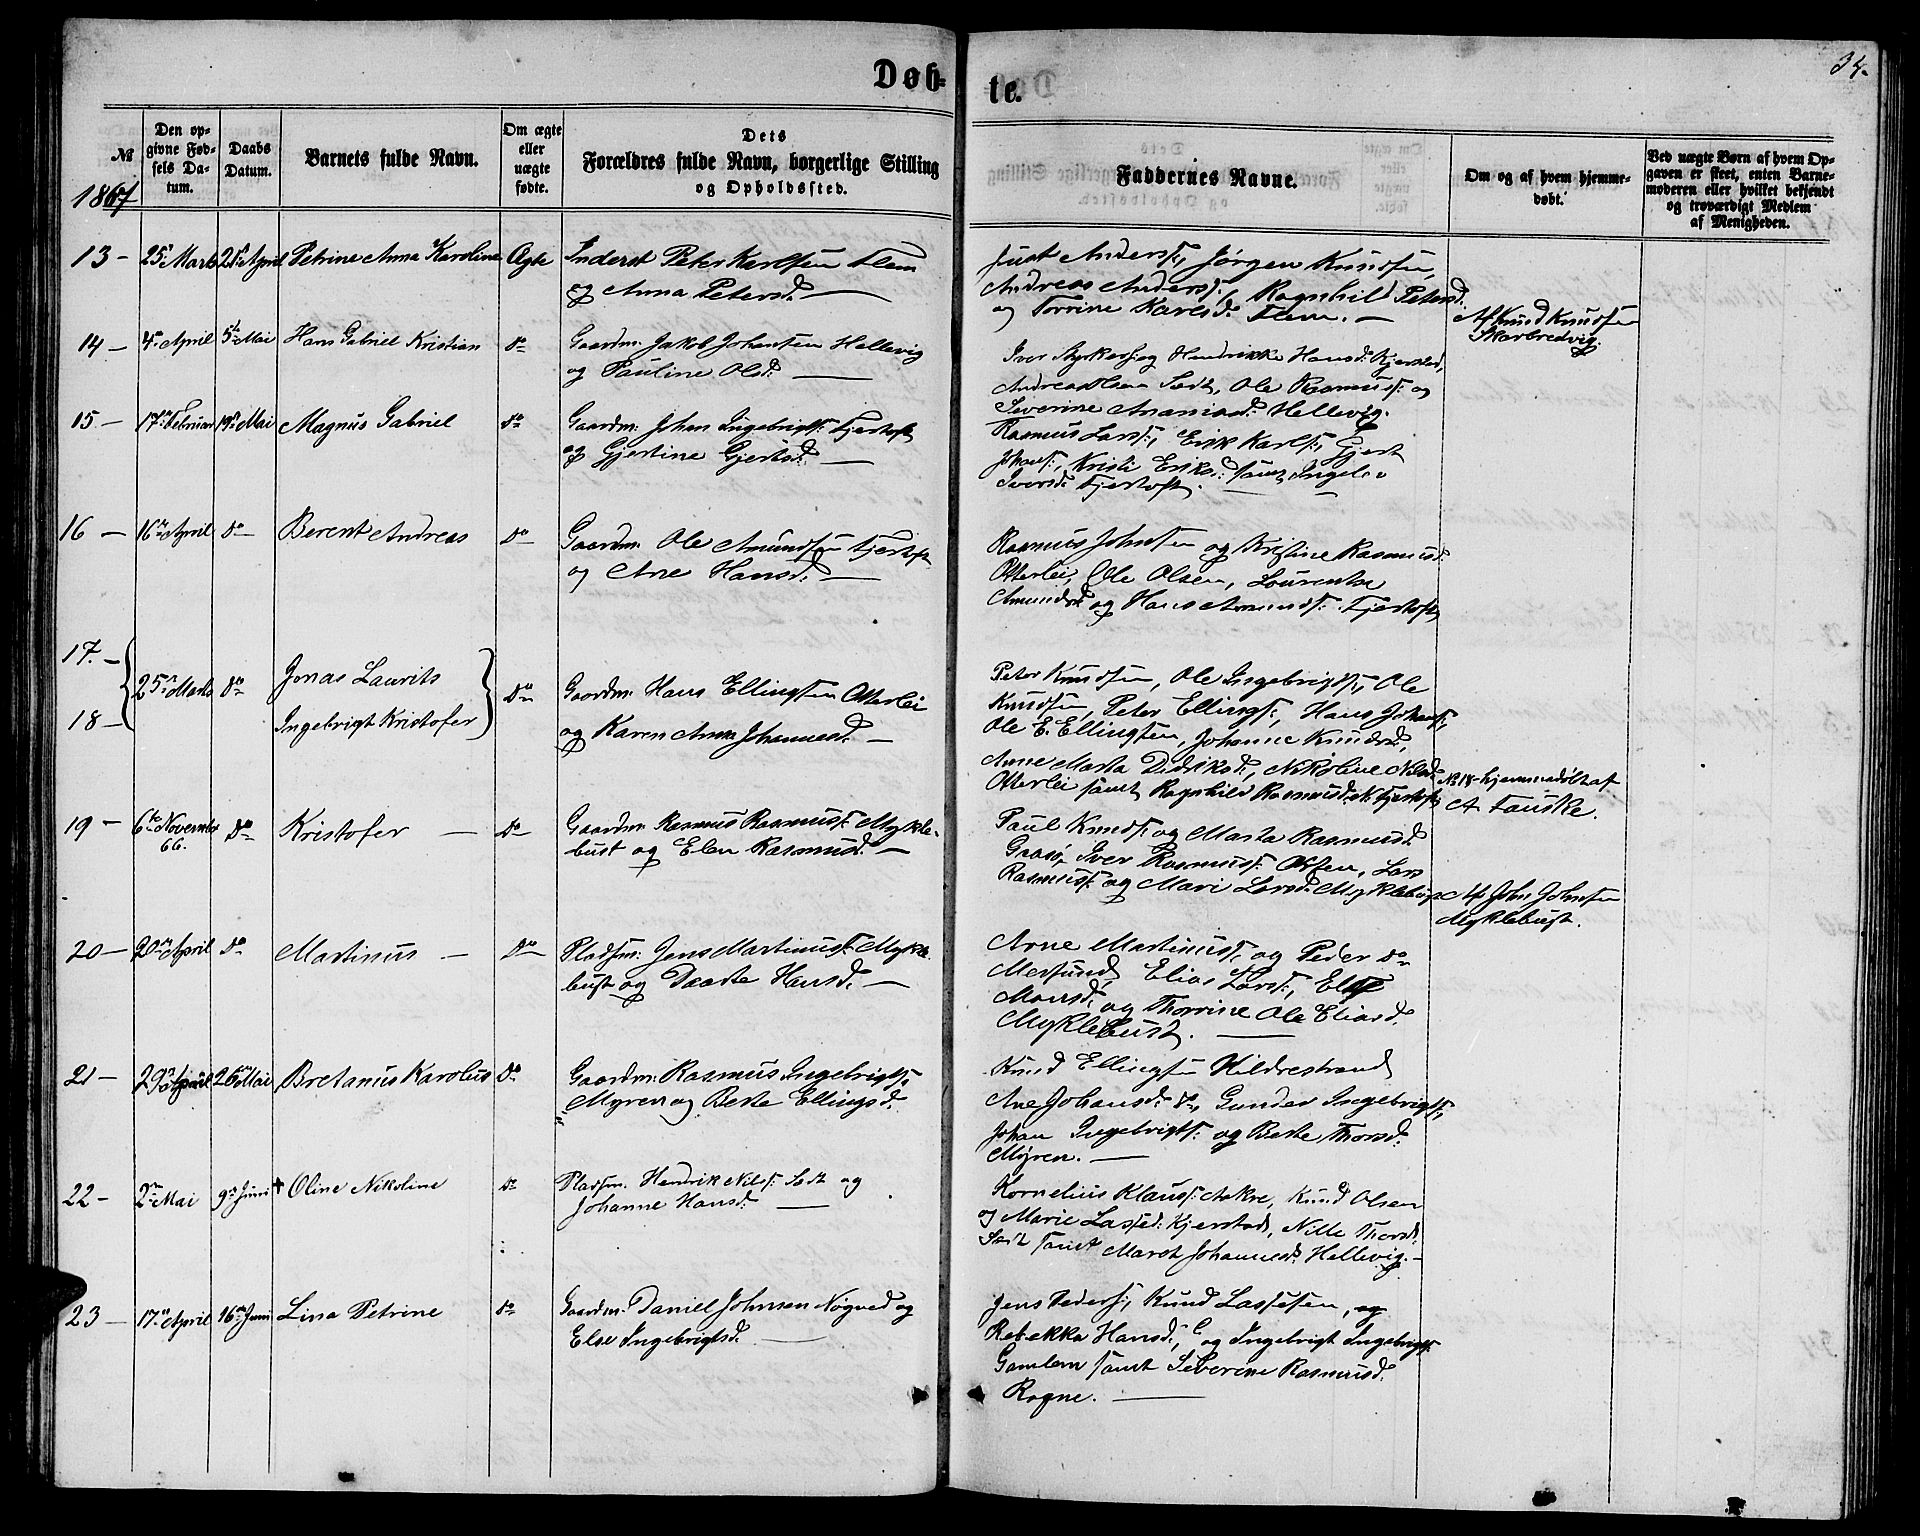 Døb-
te.
34.
№
Den op-
givne Fød-
sels Da-
tum.
Daabs
Datum.
Barnets fulde Navn.
Om ægte
eller
uægte
fødte.
Dets
Forældres fulde Navn, borgerlige Stilling
og Opholdssted.
Faddernes Navne.
Om og af hvem hjemme-
døbt.
Ved uægte Børn af hvem Op-
gaven er skeet, enten Barne-
moderen eller hvilket bekjendt
og troværdigt Medlem
af Menigheden.
1867
13 - 25 Marts 21 April Petrine Anna Karoline Ægte Inderst Peter Karlsen Flem
og Anna Petersd. —
Just Anders:, Jørgen Knudsen,
Andreas Anders:, Ragnhild Petersd:
og Torrine Karlsd. Flem. —
Af Knud Knudsen
Skarbredvig.
14 - 4 April 5 Mai Hans Gabriel Kristian do Gaardm: Jakob Johansen Hellevig
og Pauline Olsd: —
Iver og Hendrikke Hansd: Kjerstad,
Andreas Olsen Sæt, Ole Rasmuss: og
Severine Ananiasd: Hellevig.
15 - 17 Februar 19 Mai Magnus Gabriel do Gaardm: Johan Ingebrigts: Fjertoft
og Gjertine Gjertsd: —
Rasmus Larss:, Erik Karls:, Gjert
Johans:, Kristi Eriksd: samt Ingelev
Iversd: Fjertoft.
16 - 16 April do Berent Andreas do Gaardm: Ole Amundsen Fjertoft
og Ane Hansd. —
Rasmus Johnsen og Kristine Rasmusd:
Otterlei, Ole Olsen, Lourentse
Amundsd: og Hans Amunds: Fjertoft
17. -
18 -
25 Marts do Jonas Laurits
Ingebrigt Kristofer
do Gaardm: Hans Ellingsen Otterlei
og Karen Anna Johannesd. —
Peter Knudsen, Ole Ingebrigts:, Ole
Knudsen, Peter Ellings:, Hans Johans:,
Ole E. Ellingsen, Johanne Knudsd,
Anne Marta Didriksd:, Nikoline Nilsd:
Otterlei samt Ragnhild Rasmusd: N. Fjertoft
No 18 - hjemmedøbt af
A Fauske.
19 - 6 November
66.
do Kristofer — do Gaardm: Rasmus Rasmuss: Mykle-
bust og Elen Rasmusd. —
Paul Knuds: og Marta Rasmusd.
Graasø, Iver Rasmuss: Lars
Rasmuss: og Mari Larsd: Myklebust
Af John Johnsen
Myklebust.
20 - 20 April do Martinus — do Pladsm: Jens Martinuss: Mykle-
bust og Daarte Hansd. —
Arne Martinuss: og Peder do
Mersund, Elias Larss:, Else
Monsd: og Thorrine Ole Eliasd.
Myklebust. —
21 - 29 April 26 Mai Bretanus Karolus do Gaardm: Rasmus Ingebrigts:
Myren og Berte Ellingsd.
Knud Ellingsen Hildrestrand
Ane Johansd: do, Gunder Ingebrigts:,
Johan Ingebrigts: og Berte Thorsd:
Myren. —
22 - 2 Mai 9 Juni † Oline Nikoline do Pladsm: Hendrik Nils: Sæt og
Johanne Hansd: —
Kornelius Klauss: Aakre, Knud Olsen
og Marie Lassed: Kjerstad, Nille Thorsd:
Sæt samt Maret Johannesd: Hellevig. -
23 - 17 April 16 Juni Lina Petrine do Gaardm: Daniel Johnsen Nøgved og
Else Ingebrigtsd. —
Jens Peders:, Knud Lassesen, og
Rebekka Hansd:, og Ingebrigt Ingebrigts:
Gamlem samt Severine Rasmusd.
Rogne. —